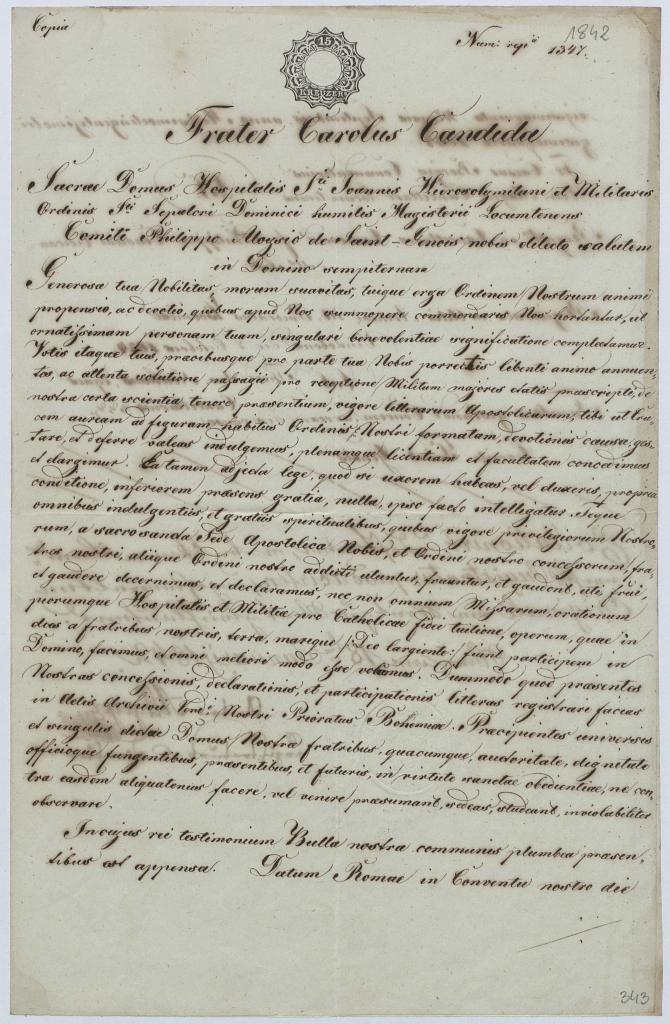 Copia
1842
Num: rep: 1347.
15
KREUZER
Frater Carolus Candida
Sacrae Domus Hospitalis Sti Joannis Hierosolymitani et Militaris
Ordinis Sti Sepulcri Dominici humilis Magisterii Locumtenens
Comiti Philippo Aloysio de Saint-Genois nobis dilecto salutem
in Domino sempiternam
Generosa tua Nobilitas morum suavitas, tuique erga Ordinem Nostrum animi
propensio, ac devotio, quibus apud Nos summopere commendaris Nos hortantur, ut
ornatissimam personam tuam, singulari benevolentiae significatione complectamur.
Votis itaque tuis, praecibusque pro parte tua Nobis porrectis libenti animo annuen-
tes, ac attenta solutione passagii pro receptione Militum majoris etatis praescripti, de
nostra certa scientia, tenore praesentium, vigore litterarum Apostolicarum, tibi ut Cru-
cem auream ad figuram habitus Ordinis Nostri formatam, devotionis causa, ges-
tare, et deferre valeas indulgemus, plenamque licentiam et facultatem concedimus
et elargimur. Ea tamen adjecta lege, quod si uxorem habeas, vel duxeris, propria
conditione, inferiorem praesens gratia, nulla, ipso facto intelligatur. Teque
omnibus indulgentiis et gratiis spiritualibus, quibus vigore privilegiorum Nostro-
rum, a sacrosancta Sede Apostolica Nobis, et Ordini nostro concessorum, fra-
tres nostri, aliique Ordini nostro addicti utuntur, fruuntur, et gaudent, uti, frui,
et gaudere decernimus, et declaramus, nec non omnium Missarum, orationum
piorumque Hospitalis et Militiae pro Catholicae fidei tuitione, operum, quae in
dies a fratribus nostris, terra, marique /:Deo largiente:/ fiunt participem in
Domino, facimus, et omni meliori modo esse volumus. Dummodo quod praesentes
Nostras concessionis, declarationis, et participationis litteras registrari facias
in Actis Archivii Vendi Nostri Prioratus Bohemiae. Praecipientes universis
et singulis dictae Domus Nostra fratribus, quacumque, auctoritate, dignitate
officioque fungentibus, praesentibus, et futuris, in virtute sanctae obedientiae, ne con-
tra easdem aliquatenus facere, vel venire praesumant, sed eas, studeant, inviolabiliter
observare.
In cujus rei testimonium Bulla nostra communis plumbea praesen-
tibus est appensa. Datum Romae in Conventu nostro die
343